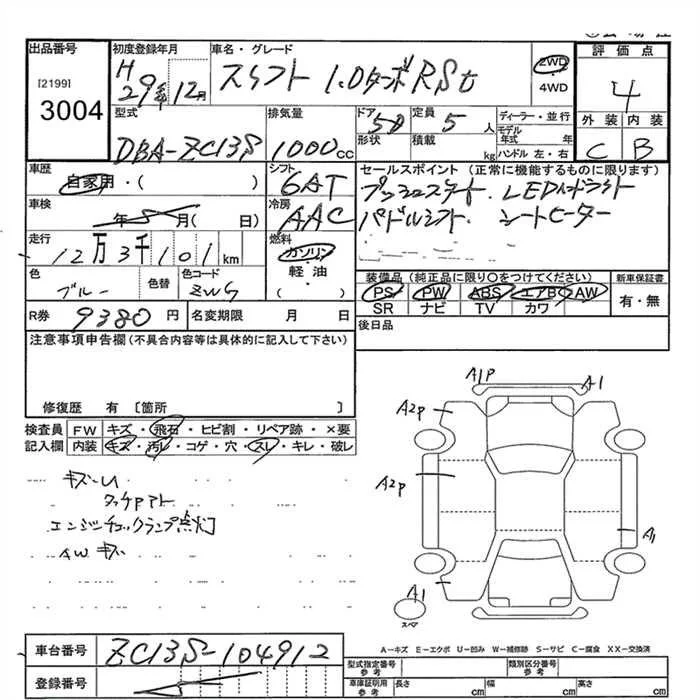 出品番号
[2199]
3004
初度登録年月
H 29年 12月
車名・グレード
スイフト 1.0ターボRSt
2WD
4WD
評価点
4
外装 内装
C B
型式
DBA-ZC13S
排気量
1000cc
ドア
5D
形状
定員
5人
積載
kg
ディーラー・並行
モデル年式 年
ハンドル 左・右
車歴
自家用・( )
シフト
6AT
セールスポイント (正常に機能するものに限ります)
プッシュスタート. LEDヘッドライト
パドルシフト. シートヒーター
車検
年 月( 日)
冷房
AAC
走行
12万3千101km
燃料
ガソリン
軽・油
( )
色
ブルー
色替
色コード
ZWG
装備品(純正品に限り○をつけてください)
PS PW ABS エアB AW
SR ナビ TV カワ
新車保証書
有・無
R券
9380円
名変期限 月 日
後日品
注意事項申告欄(不具合内容等は具体的に記入して下さい)
修復歴 有 [箇所 ]
検査員 FW キズ・飛石・ヒビ割・リペア跡・×要
記入欄 内装 キズ・汚レ・コゲ・穴・スレ・キレ・破レ
キズ-U
タッチPアト
エンジンチェックランプ点灯
AWキズ
A1P
A1
A2P
A2P
A1
A1
スペア
A-キズ E-エクボ U-凹み W-補修跡 S-サビ C-腐食 XX-交換済
車台番号
ZC13S-104912
登録番号
型式指定番号
参考
類別区分番号
参考
車庫証明用
参考
長さ cm
幅 cm
高さ cm